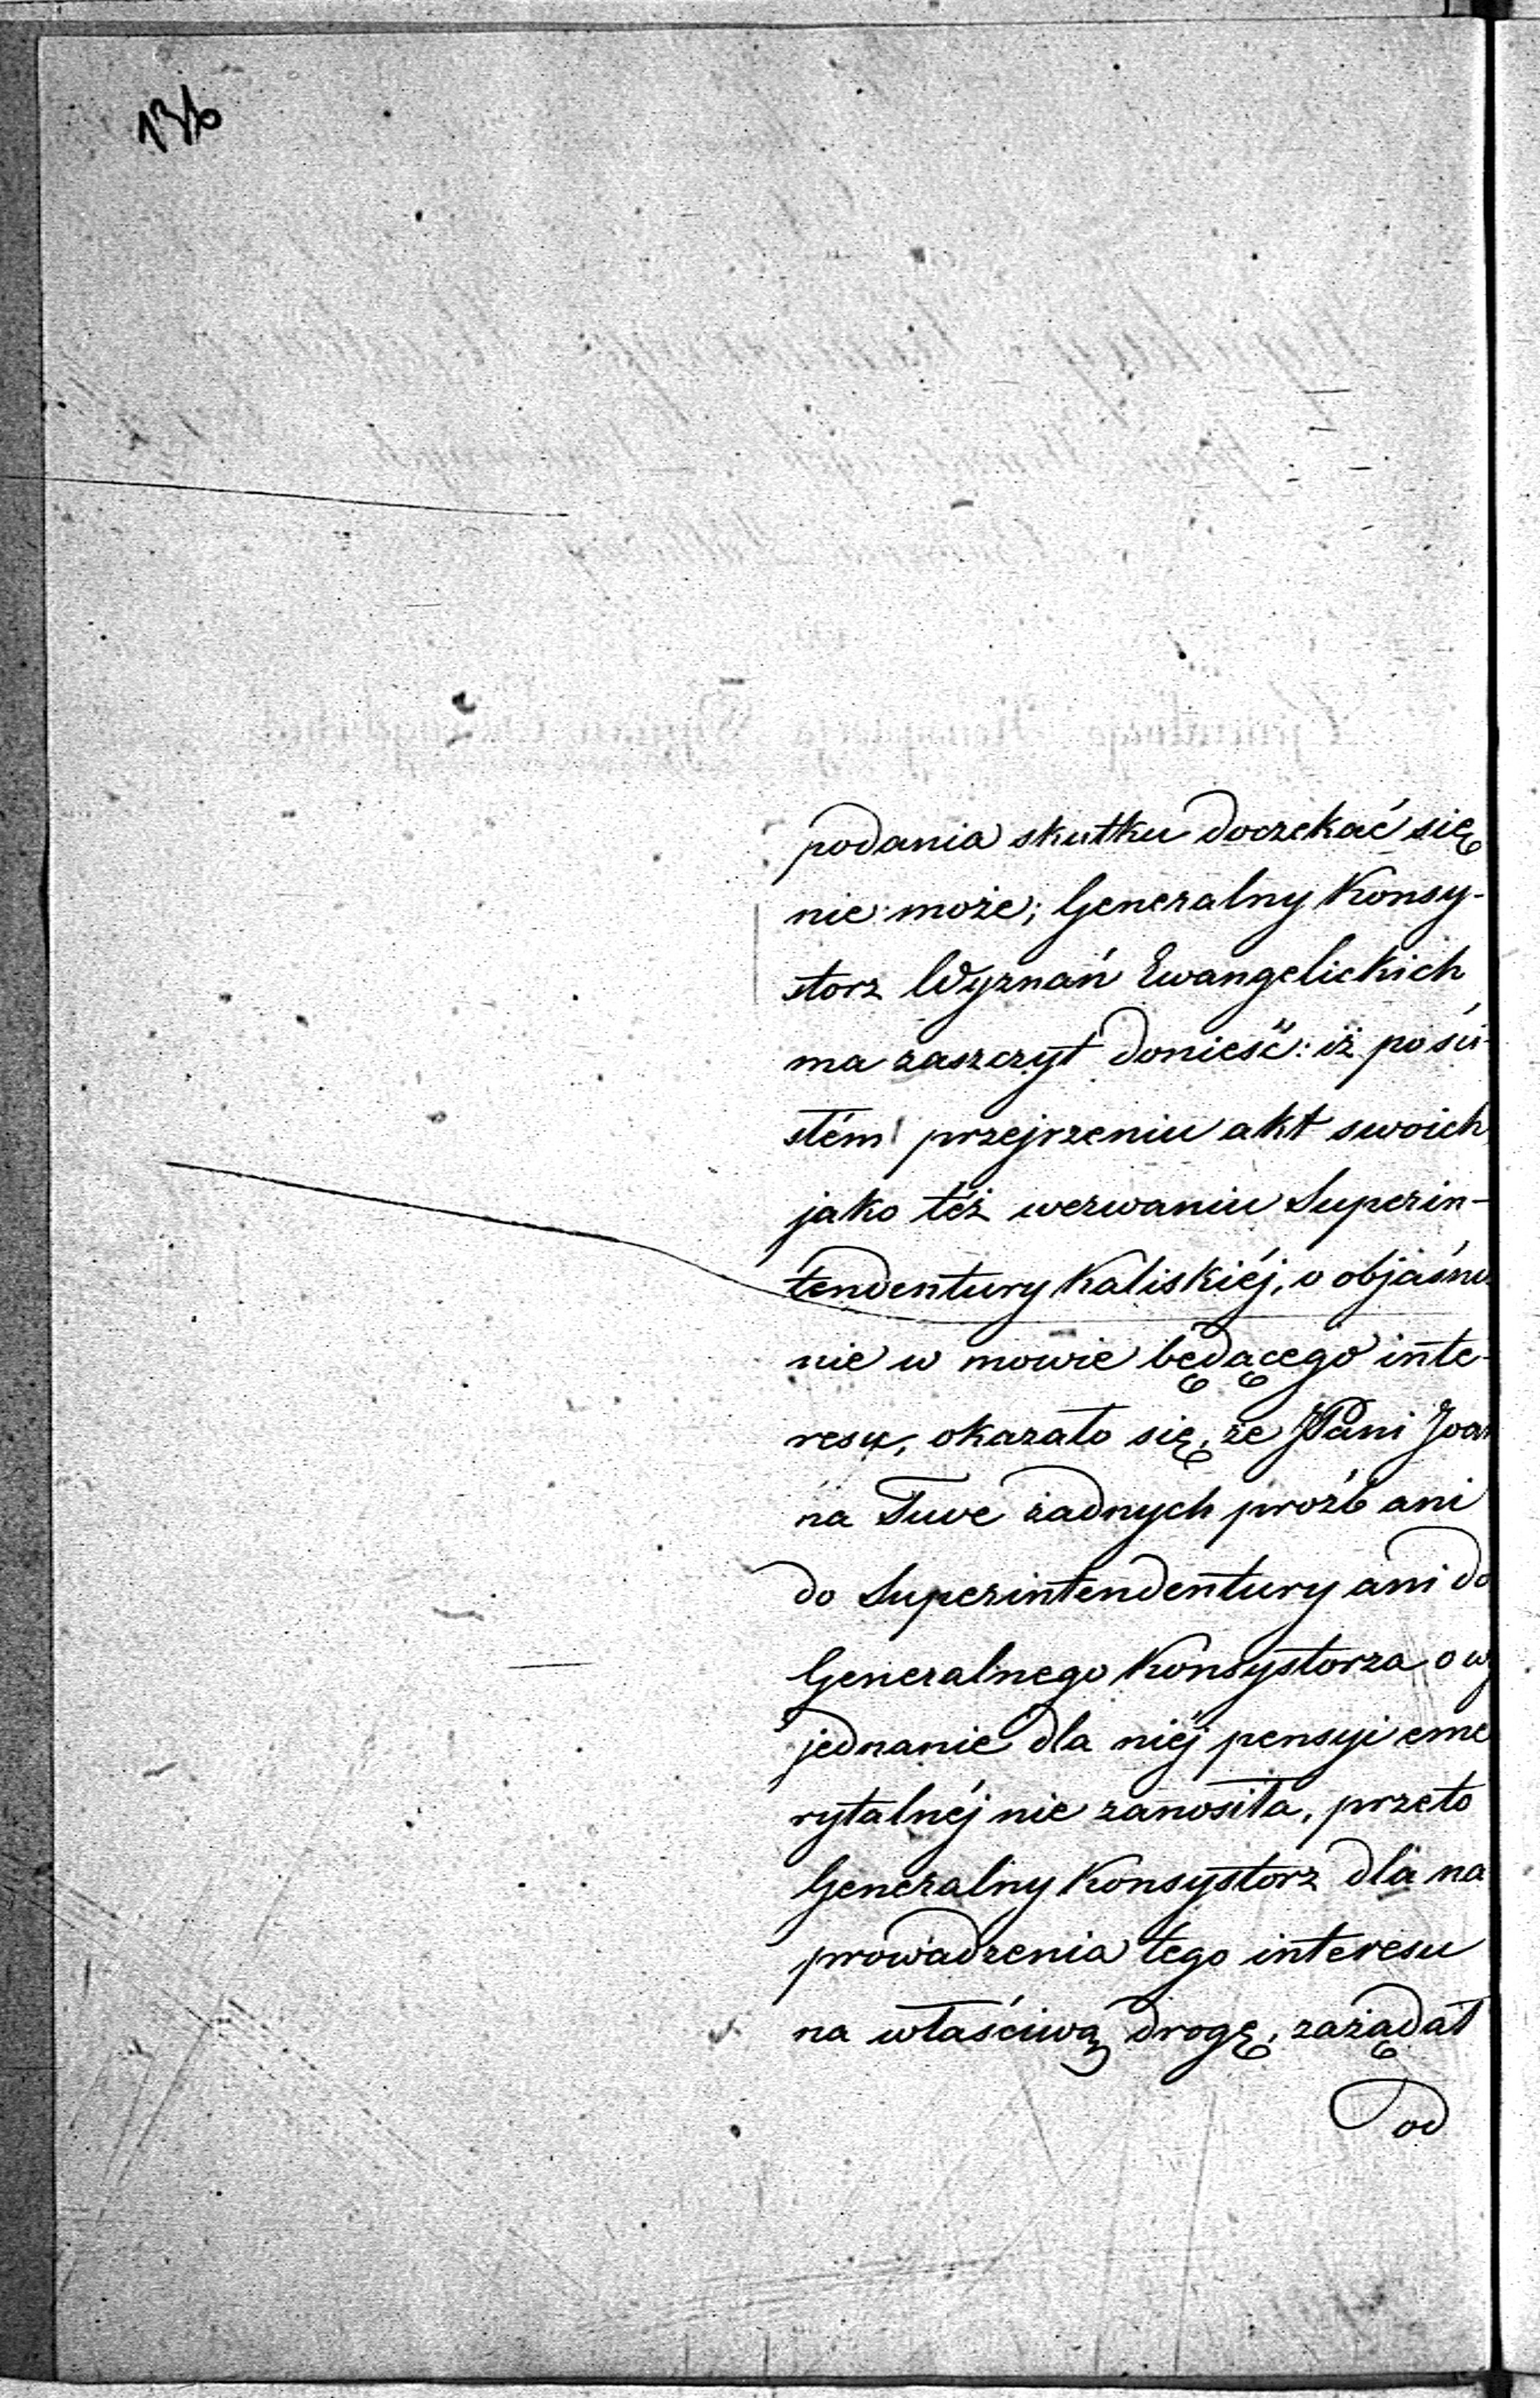 136
podania skutku doczekać się
nie może; Generalny Konsy-
storz Wyznań Ewangelickich
ma zaszczyt donieść: iż po ści-
stém przejrzeniu akt swoich
jako téż wezwaniu Superin-
tendentury Kaliskiéj, o objaśnie
nie w mowie będącego inte-
resu, okazało się, że JPani Joan
na Tuve żadnych prożb ani
do Superintendentury ani do
Generalnego Konsystorza o wy
jednanie dla niéj pensyi eme
rytalnéj nie zanosiła, przeto
Generalny Konsystorz dla na
prowadzenia tego interesu
na właściwą drogę, zażądał
od